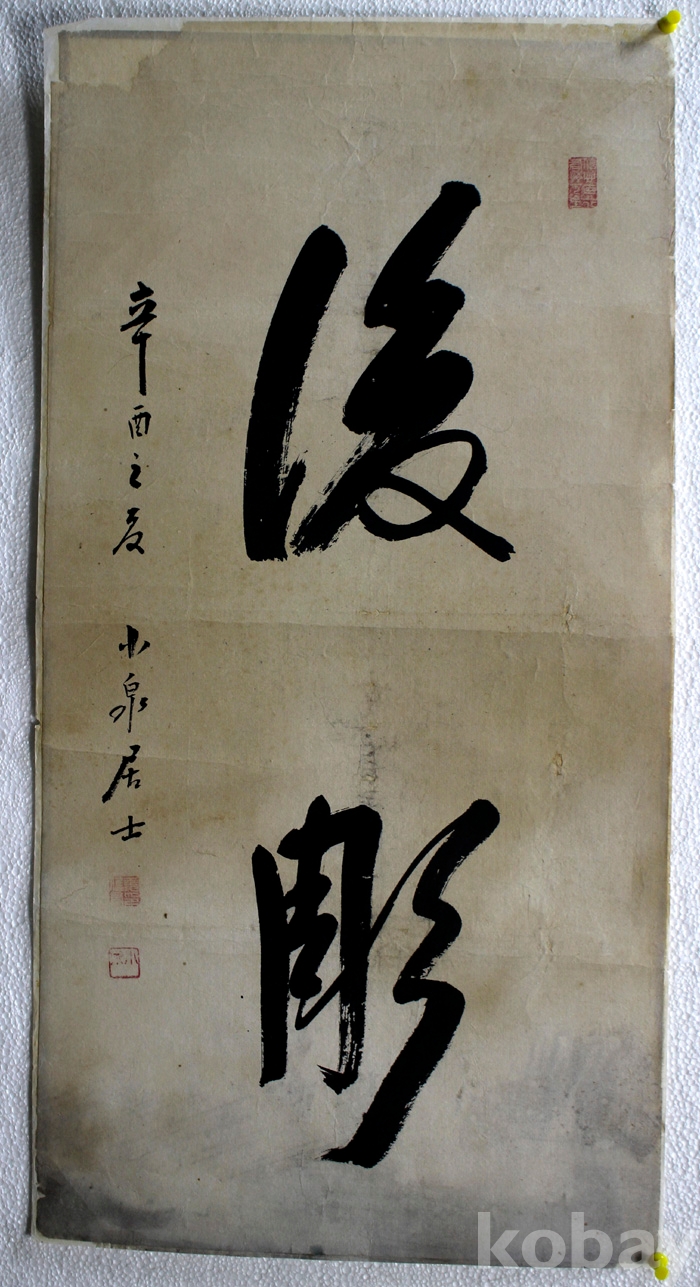 後彫
辛酉之夏 小泉居士
kobay